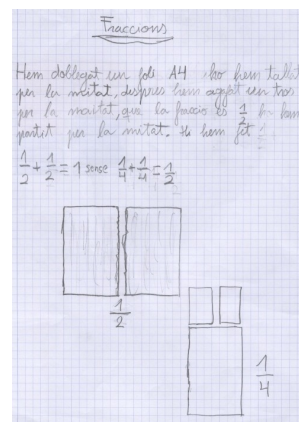 Fraccions
Hem doblegat un foli A4 i ho hem tallat
per la meitat, després hem agafat un tros
per la meitat, que la fracció és 1/2 ho hem
partit per la mitat. Hi hem fet
1/2 + 1/2 = 1 sense 1/4 + 1/4 = 1/2
1/2
1/4